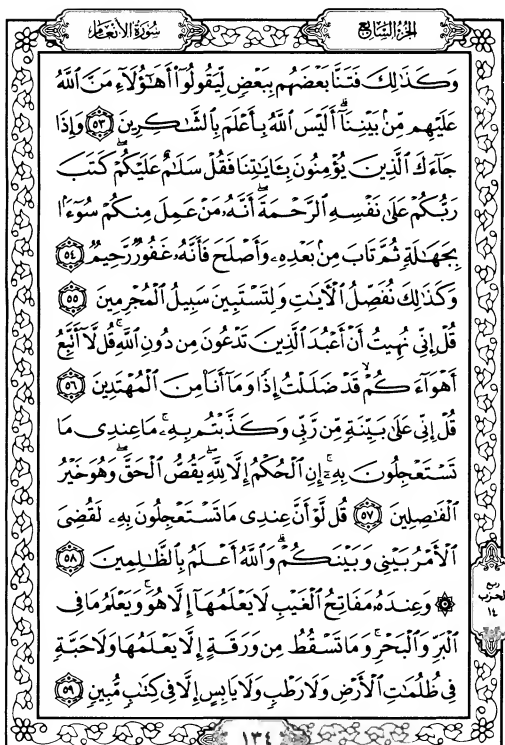 سُورَةُ الأَنْعَامِ
الجُزْءُ السَّابِعُ
وَكَذَٰلِكَ فَتَنَّا بَعْضَهُم بِبَعْضٍ لِّيَقُولُوٓا۟ أَهَٰٓؤُلَآءِ مَنَّ ٱللَّهُ
عَلَيْهِم مِّنۢ بَيْنِنَآ ۗ أَلَيْسَ ٱللَّهُ بِأَعْلَمَ بِٱلشَّٰكِرِينَ ٥٣ وَإِذَا
جَآءَكَ ٱلَّذِينَ يُؤْمِنُونَ بِـَٔايَٰتِنَا فَقُلْ سَلَٰمٌ عَلَيْكُمْ ۖ كَتَبَ
رَبُّكُمْ عَلَىٰ نَفْسِهِ ٱلرَّحْمَةَ ۖ أَنَّهُۥ مَنْ عَمِلَ مِنكُمْ سُوٓءًۢا
بِجَهَٰلَةٍ ثُمَّ تَابَ مِنۢ بَعْدِهِۦ وَأَصْلَحَ فَأَنَّهُۥ غَفُورٌ رَّحِيمٌ ٥٤
وَكَذَٰلِكَ نُفَصِّلُ ٱلْـَٔايَٰتِ وَلِتَسْتَبِينَ سَبِيلُ ٱلْمُجْرِمِينَ ٥٥
قُلْ إِنِّى نُهِيتُ أَنْ أَعْبُدَ ٱلَّذِينَ تَدْعُونَ مِن دُونِ ٱللَّهِ ۚ قُل لَّآ أَتَّبِعُ
أَهْوَآءَكُمْ ۙ قَدْ ضَلَلْتُ إِذًا وَمَآ أَنَا۠ مِنَ ٱلْمُهْتَدِينَ ٥٦
قُلْ إِنِّى عَلَىٰ بَيِّنَةٍ مِّن رَّبِّى وَكَذَّبْتُم بِهِۦ ۚ مَا عِندِى مَا
تَسْتَعْجِلُونَ بِهِۦٓ ۚ إِنِ ٱلْحُكْمُ إِلَّا لِلَّهِ ۖ يَقُصُّ ٱلْحَقَّ ۖ وَهُوَ خَيْرُ
ٱلْفَٰصِلِينَ ٥٧ قُل لَّوْ أَنَّ عِندِى مَا تَسْتَعْجِلُونَ بِهِۦ لَقُضِىَ
ٱلْأَمْرُ بَيْنِى وَبَيْنَكُمْ ۗ وَٱللَّهُ أَعْلَمُ بِٱلظَّٰلِمِينَ ٥٨
۞ وَعِندَهُۥ مَفَاتِحُ ٱلْغَيْبِ لَا يَعْلَمُهَآ إِلَّا هُوَ ۚ وَيَعْلَمُ مَا فِى
ٱلْبَرِّ وَٱلْبَحْرِ ۚ وَمَا تَسْقُطُ مِن وَرَقَةٍ إِلَّا يَعْلَمُهَا وَلَا حَبَّةٍ
فِى ظُلُمَٰتِ ٱلْأَرْضِ وَلَا رَطْبٍ وَلَا يَابِسٍ إِلَّا فِى كِتَٰبٍ مُّبِينٍ ٥٩
ربع
الحزب
١٤
١٣٤